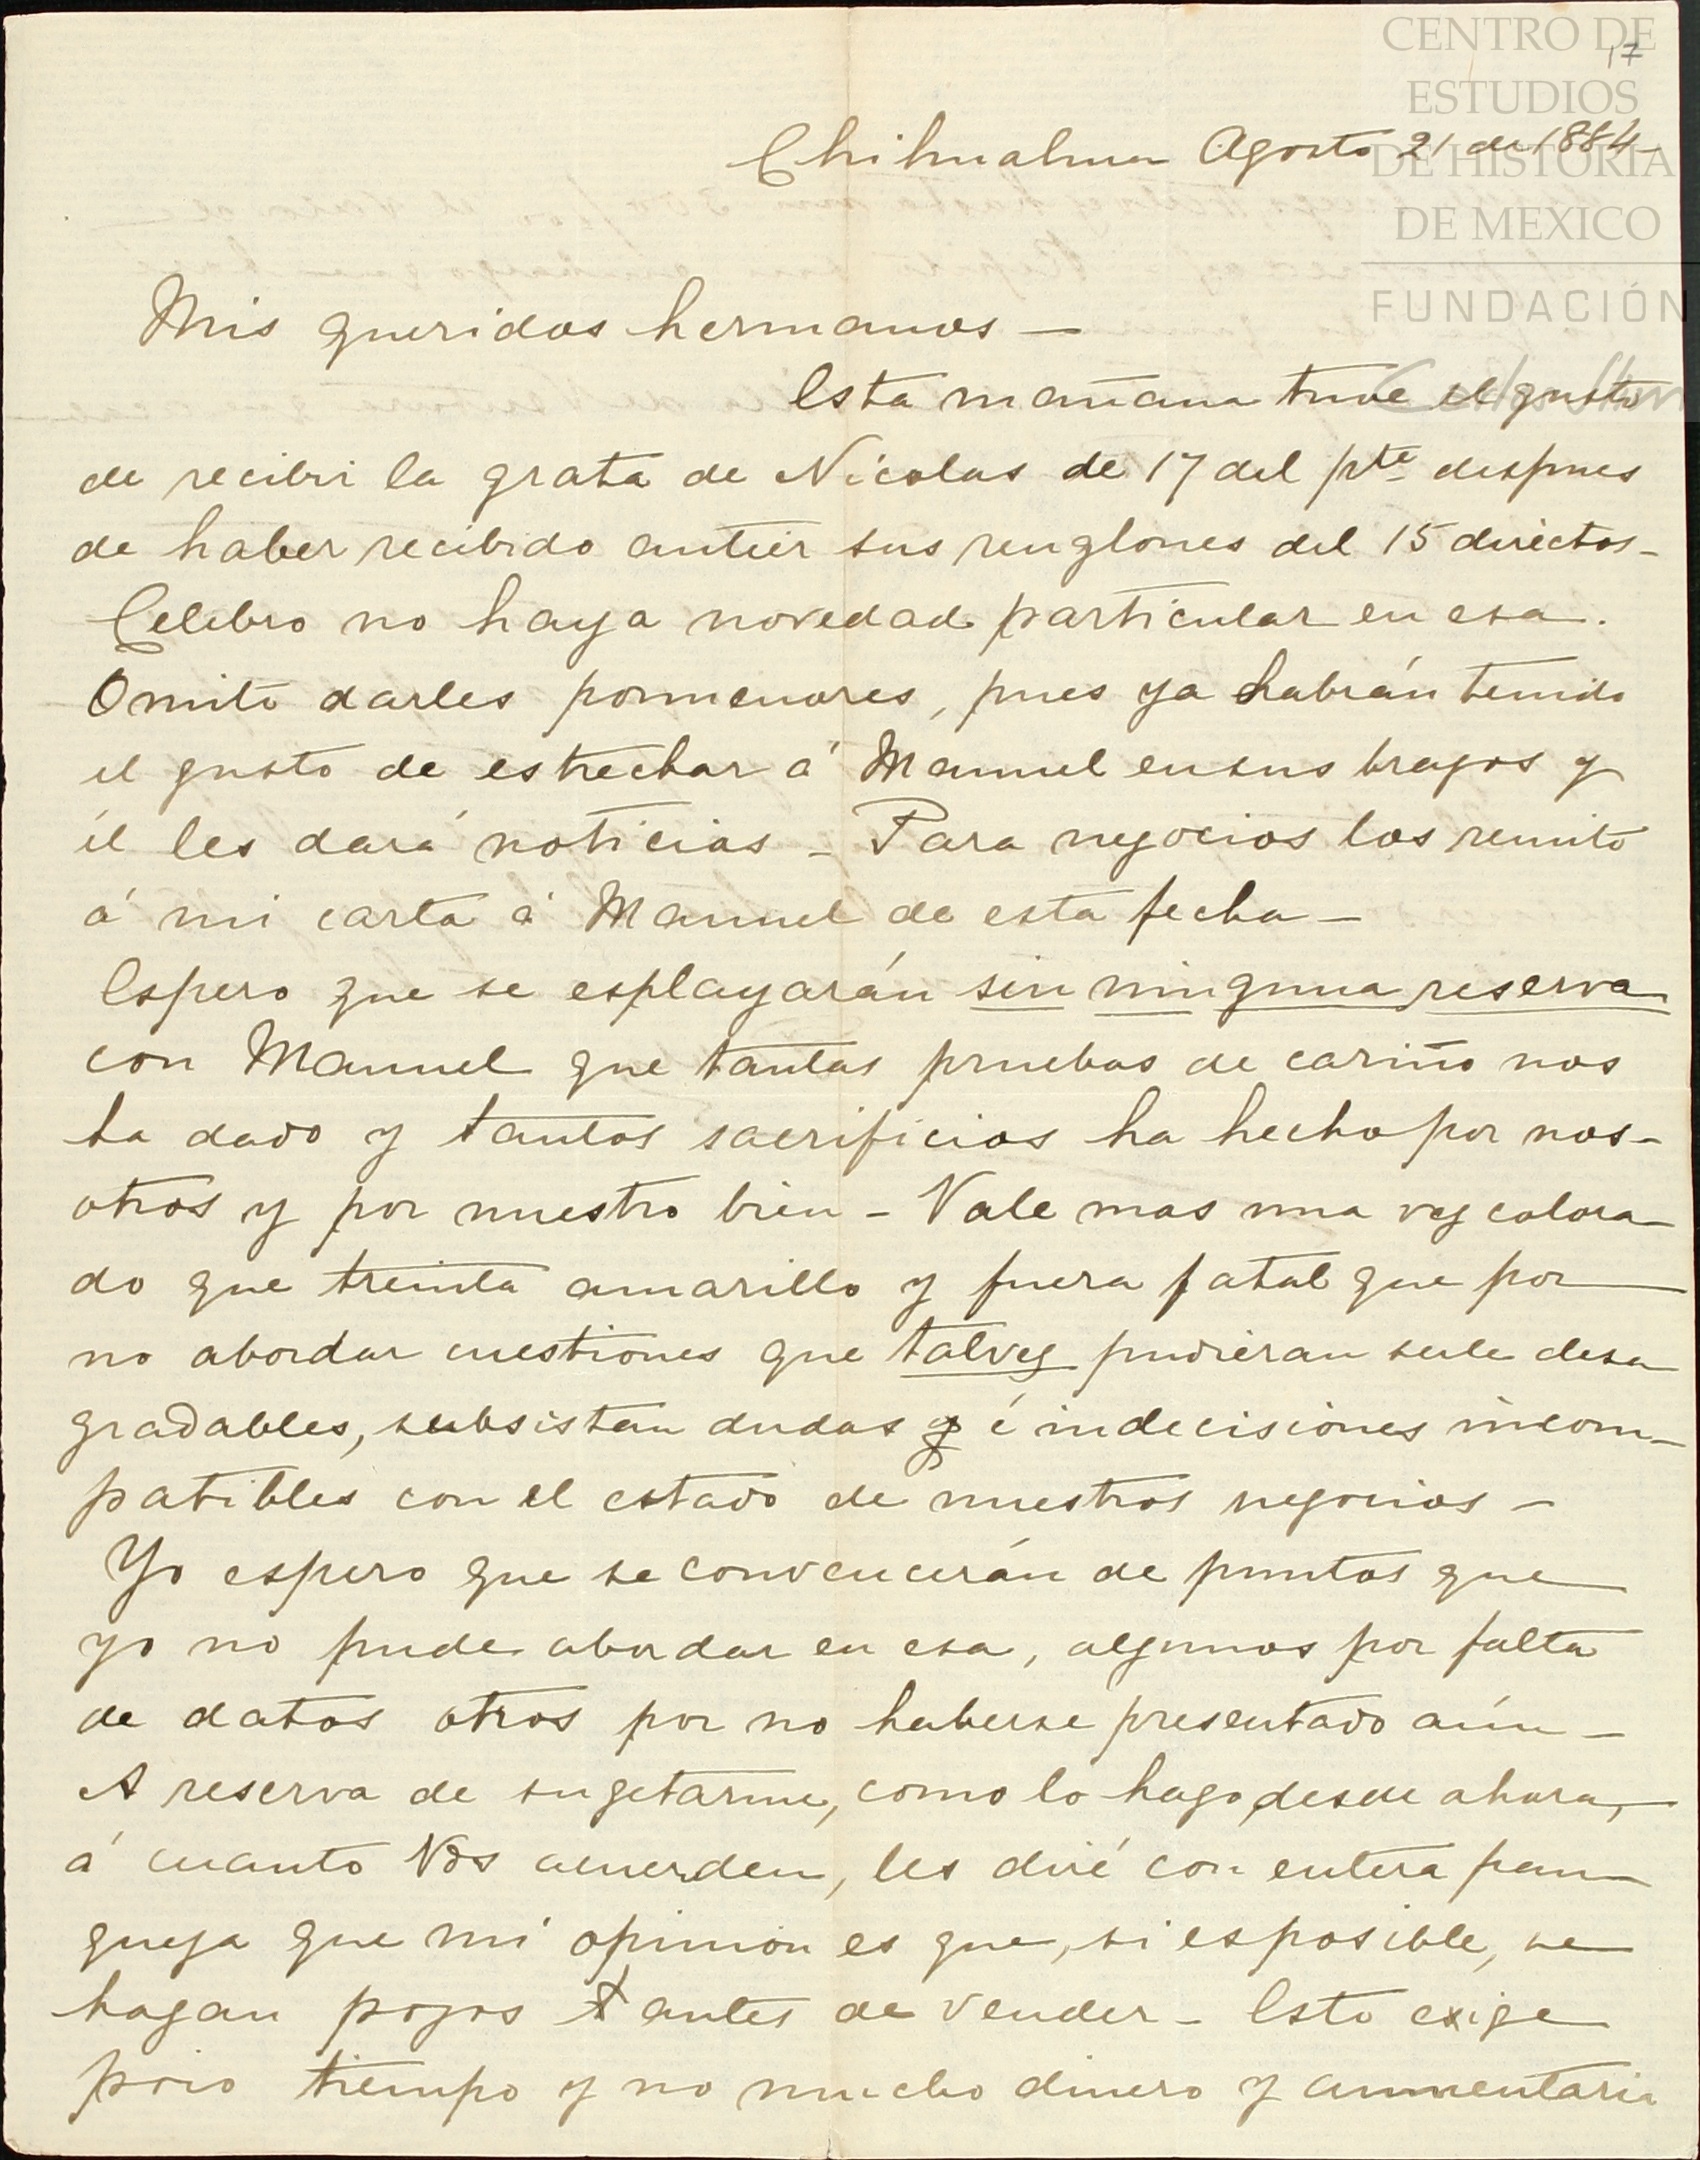 CENTRO DE
ESTUDIOS
DE HISTORIA
DE MEXICO
FUNDACIÓN
17
Chihuahua Agosto 21 de 1884-
Mis queridos hermanos —
Esta mañana tuve el gusto
de recibir la grata de Nicolas de 17 del pte despues
de haber recibido antier sus renglones del 15 directos-
Celebro no haya novedad particular en esa.
Omito darles pormenores, pues ya habrán tenido
el gusto de estrechar á Manuel en sus brazos y
él les dará noticias - Para negocios los remito
á mi carta á Manuel de esta fecha —
Espero que se esplayarán sin ninguna reserva
con Manuel que tantas pruebas de cariño nos
ha dado y tantos sacrificios ha hecho por nos-
otros y por nuestro bien - Vale mas una vez colora-
do que treinta amarillo y fuera fatal que por
no abordar cuestiones que talvez pudieran serle desa
gradables, subsistan dudas é indecisiones incom-
patibles con el estado de nuestros negocios -
Yo espero que se convencerán de puntos que
yo no pude abordar en esa, algunos por falta
de datos otros por no haberse presentado aún -
A reserva de sugetarme, como lo hago, desde ahora,
á cuanto Vds acuerden, les diré con entera fran
queza que mi opinion es que, si es posible, se
hagan pozos antes de vender - Esto exige
poco tiempo y no mucho dinero y aumentaria